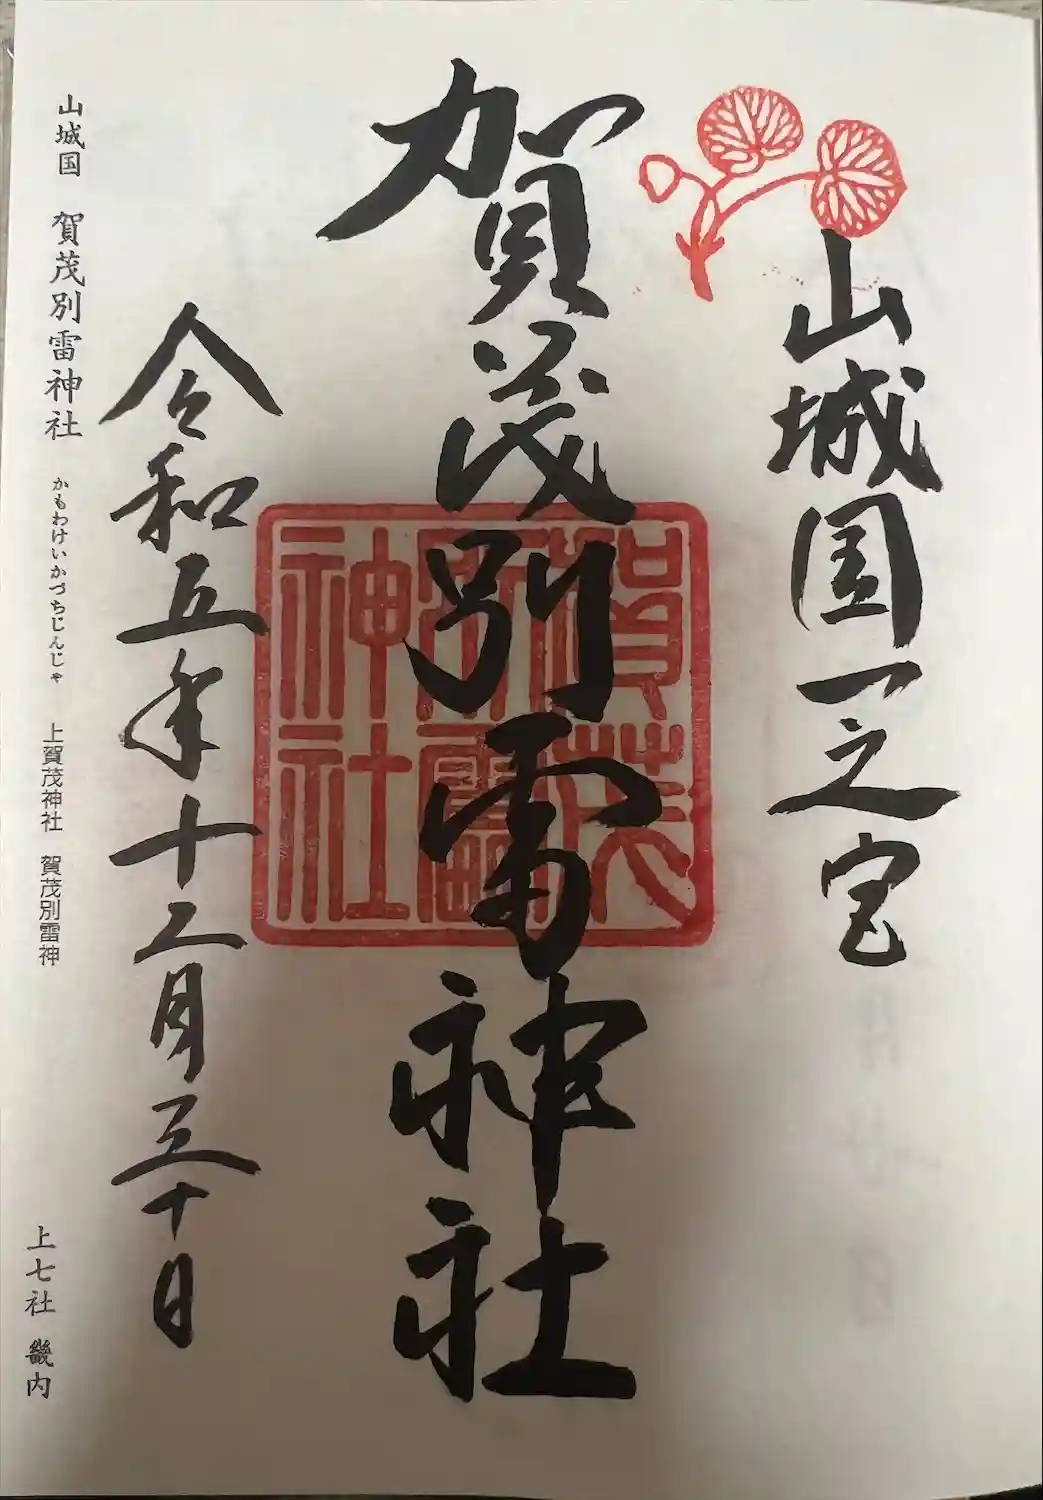 山城国一之宮
賀茂別雷神社
賀茂別雷神社
令和五年十二月三十日
山城国 賀茂別雷神社 かもわけいかづちじんじゃ 上賀茂神社 賀茂別雷神 上七社 畿内